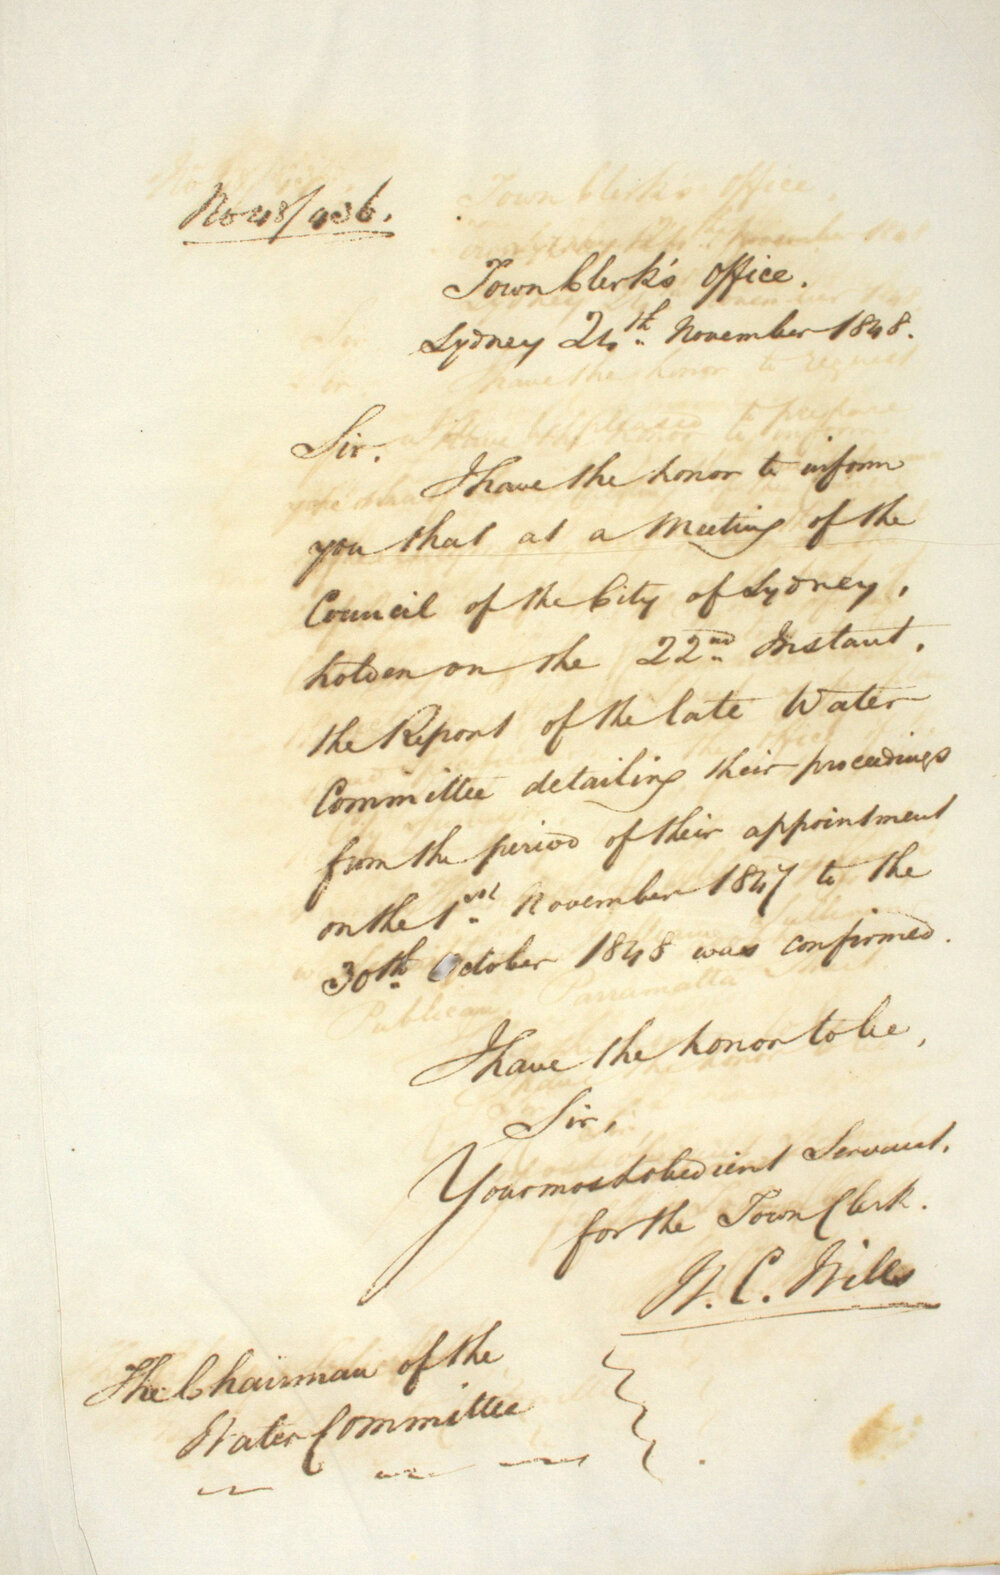 No 48/436.
Town Clerk's Office.
Sydney 24th November 1848.
Sir.
I have the honor to inform
you that at a Meeting of the
Council of the City of Sydney,
holden on the 22nd Instant,
the Report of the late Water
Committee detailing their proceedings
from the period of their appointment
on the 1st November 1847 to the
30th October 1848 was confirmed.
I have the honor to be,
Sir,
Your most obedient Servant,
for the Town Clerk.
W. C. Wills
The Chairman of the
Water Committee